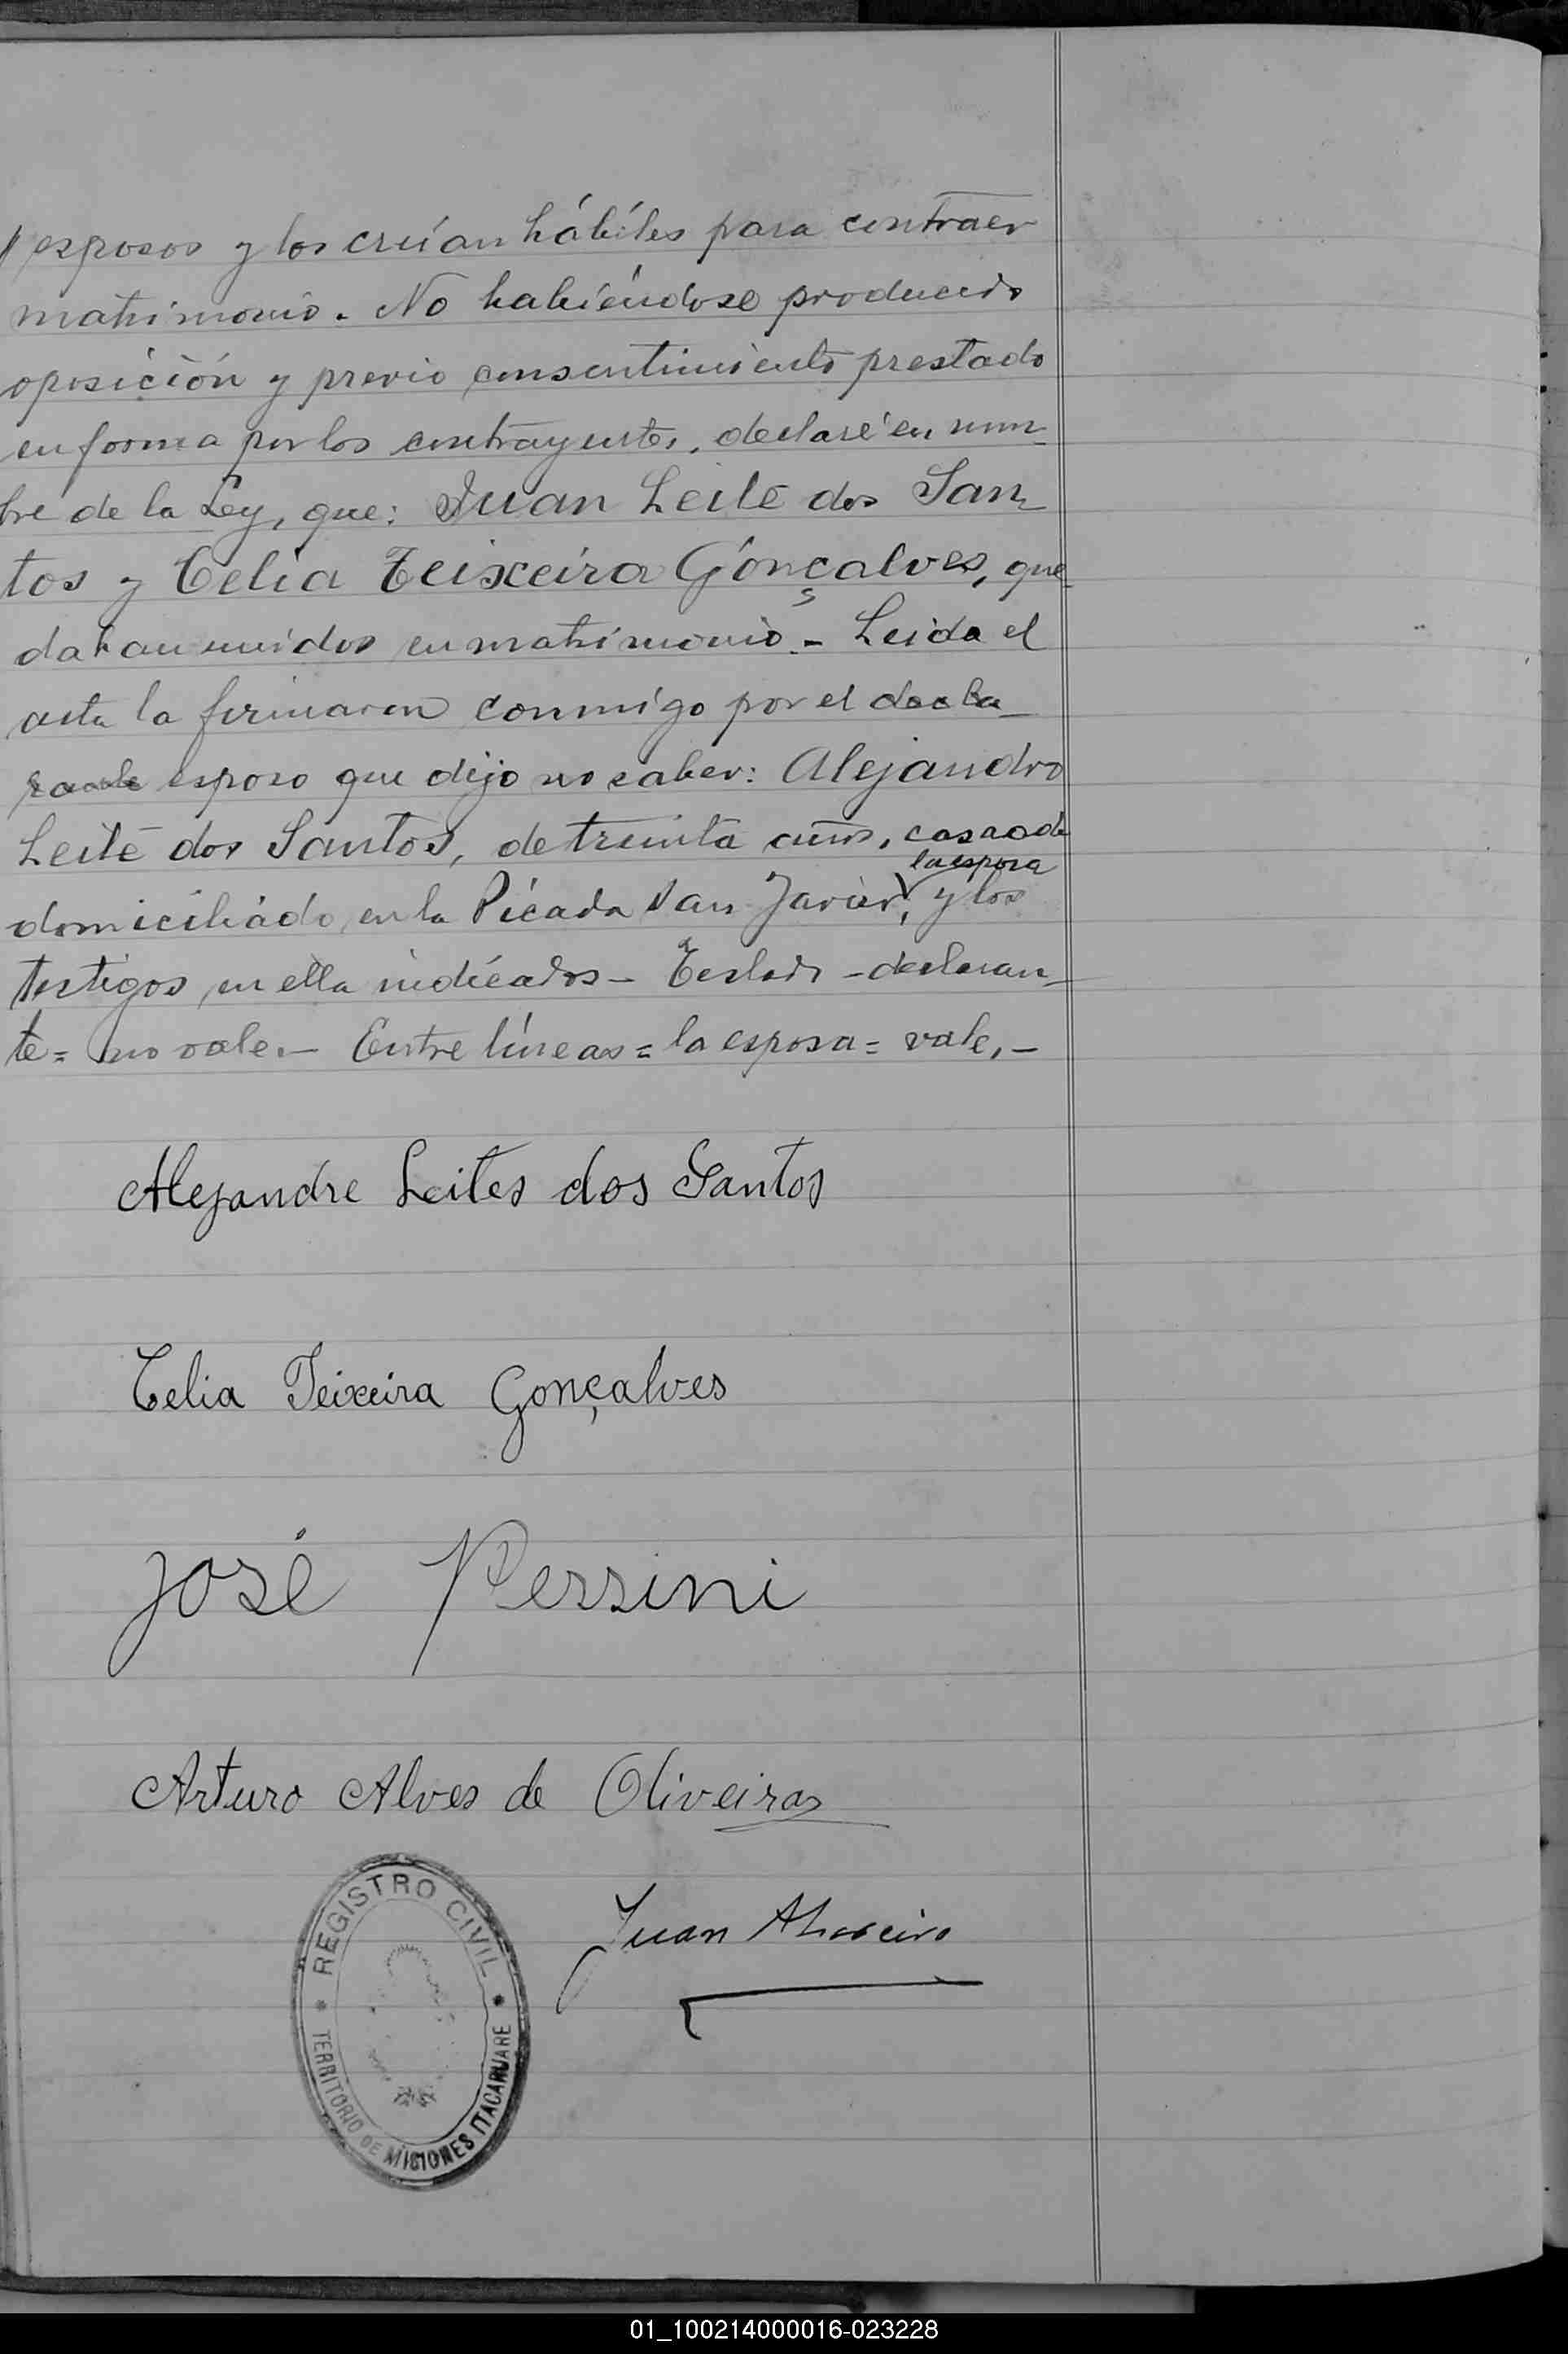 // esposos y los creían hábiles para contraer
matrimonio. No habiéndose producido
oposición y previo consentimiento prestado
en forma por los contrayentes, declaré en nom-
bre de la Ley, que: Juan Leite dos San-
tos y Celia Teixeira Gonçalves, que-
daban unidos en matrimonio.- Leída el
acta la firmaron conmigo por el decla-
rante esposo que dijo no saber: Alejandro
Leite dos Santos, de treinta años, casado
la esposa
domiciliado en la Picada San Javier, y los
testigos en ella indicados - Testado - declaran-
te = no vale.- Entre líneas = la esposa = vale.-
Alejandre Leites dos Santos
Celia Teixeira Gonçalves
José Persini
Arturo Alves de Oliveira
Juan
REGISTRO CIVIL
TERRITORIO DE MISIONES ITACARUARE
01_100214000016-023228